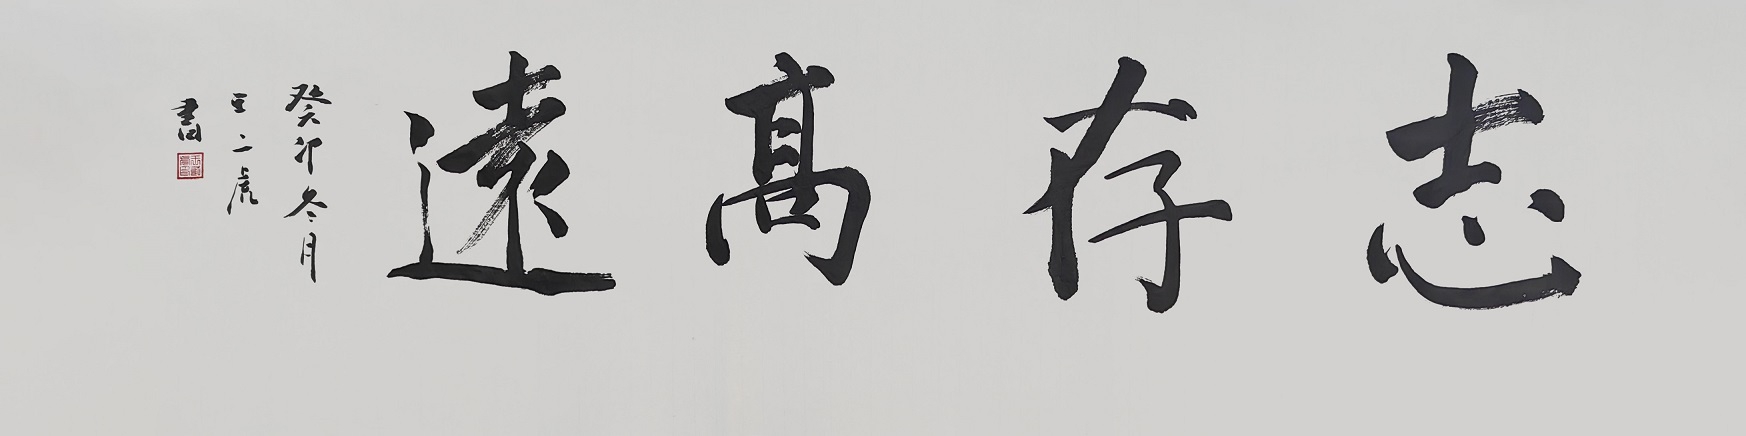 志存高遠
癸卯冬月
王二虎
書